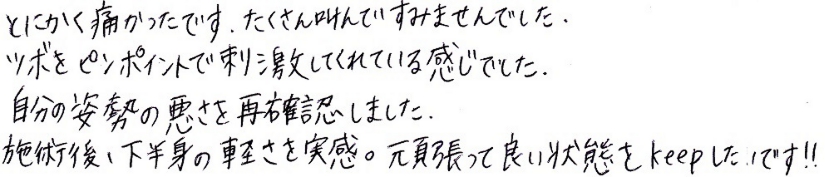 とにかく痛かったです.たくさん叫んですみませんでした.
ツボをピンポイントで刺激してくれている感じでした.
自分の姿勢の悪さを再確認しました.
施術後、下半身の軽さを実感。頑張って良い状態をkeepしたいです!!